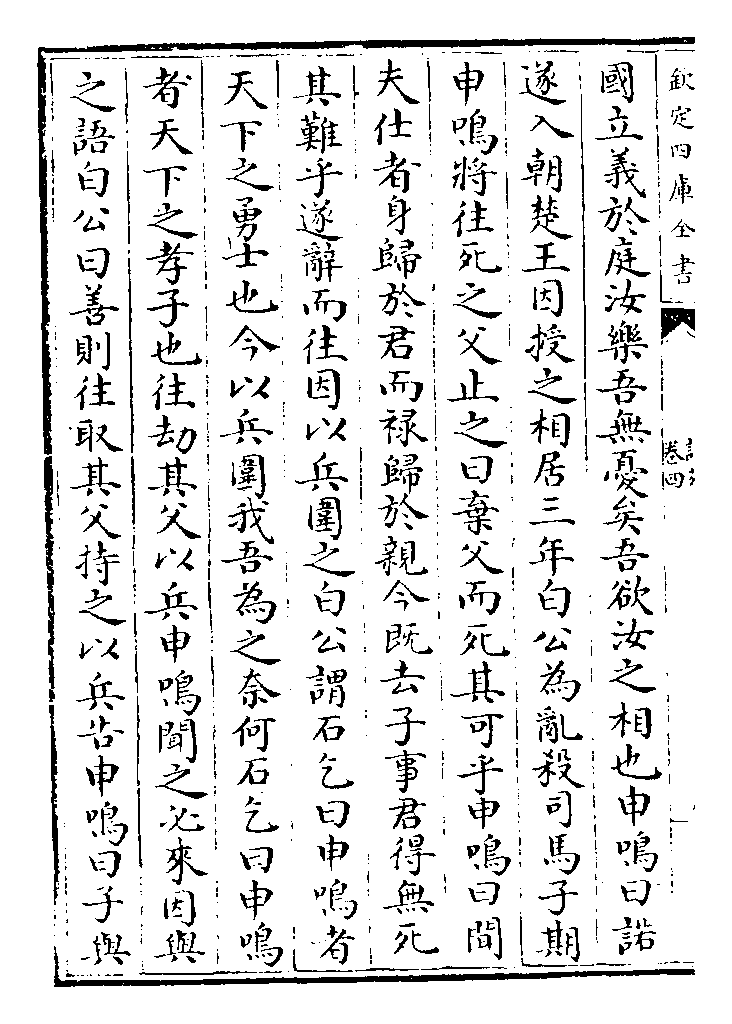 欽定四庫全書
卷四
國立義於庭汝樂吾無憂矣吾欲汝之相也申鳴曰諾
遂入朝楚王因授之相居三年白公為亂殺司馬子期
申鳴將往死之父止之曰棄父而死其可乎申鳴曰聞
夫仕者身歸於君而禄歸於親今既去子事君得無死
其難乎遂辭而往因以兵圍之白公謂石乞曰申鳴者
天下之勇士也今以兵圍我吾為之奈何石乞曰申鳴
者天下之孝子也往劫其父以兵申鳴聞之必來因與
之語白公曰善則往取其父持之以兵告申鳴曰子與